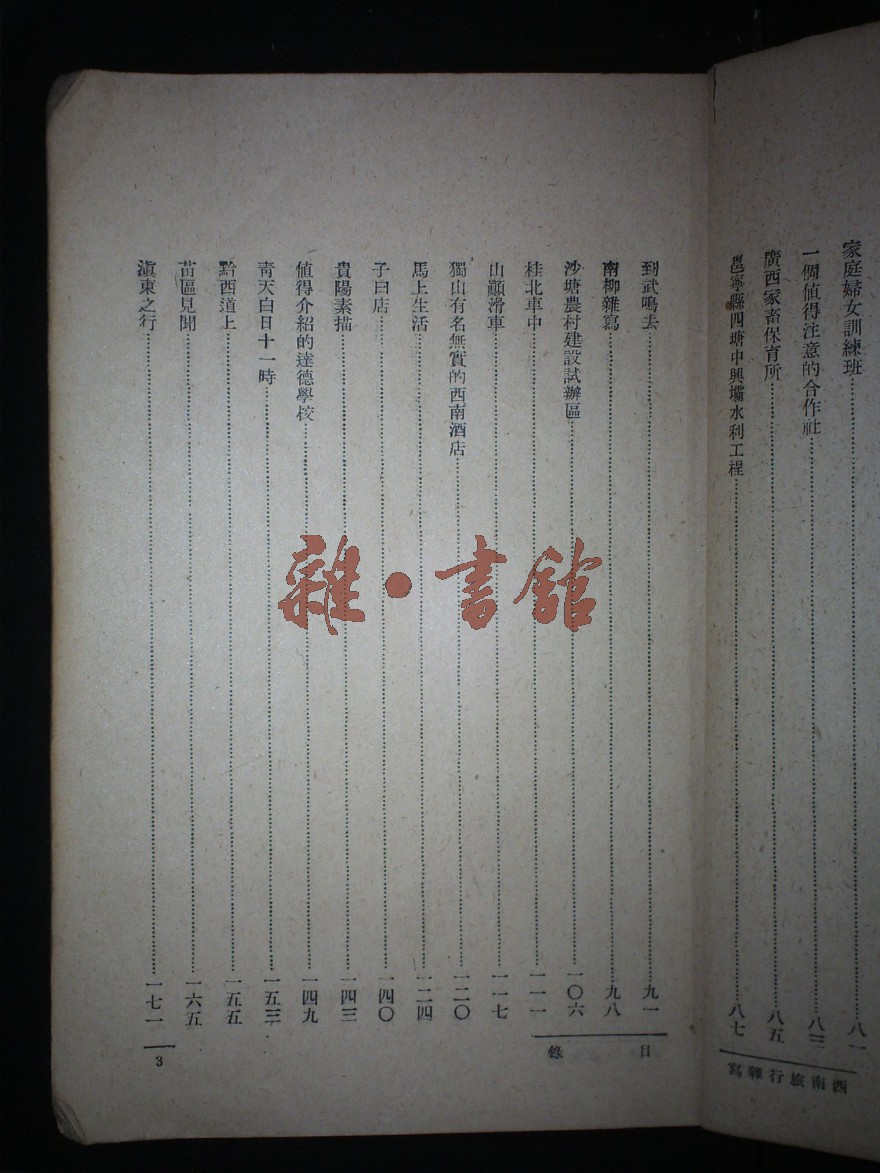 家庭婦女訓練班⋯⋯八一
一個值得注意的合作社⋯⋯八三
廣西家畜保育所⋯⋯八五
邕寧縣四塘中興壩水利工程⋯⋯八七
西南旅行雜寫
目錄
到武鳴去⋯⋯九一
南柳雜寫⋯⋯九八
沙塘農村建設試辦區⋯⋯一〇六
桂北車中⋯⋯一一一
山巔滑車⋯⋯一一七
獨山有名無實的西南酒店⋯⋯一二〇
馬上生活⋯⋯一二四
子曰店⋯⋯一四〇
貴陽素描⋯⋯一四三
值得介紹的達德學校⋯⋯一四九
靑天白日十一時⋯⋯一五三
黔西道上⋯⋯一五五
苗區見聞⋯⋯一六五
滇東之行⋯⋯一七一
3
雜·書館